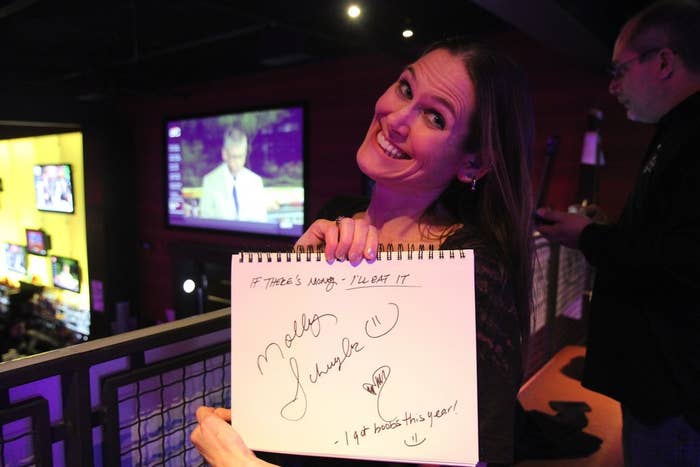 IF THERE'S MONEY - I'LL EAT IT
Molly
Schuyler
- I got boobs this year!